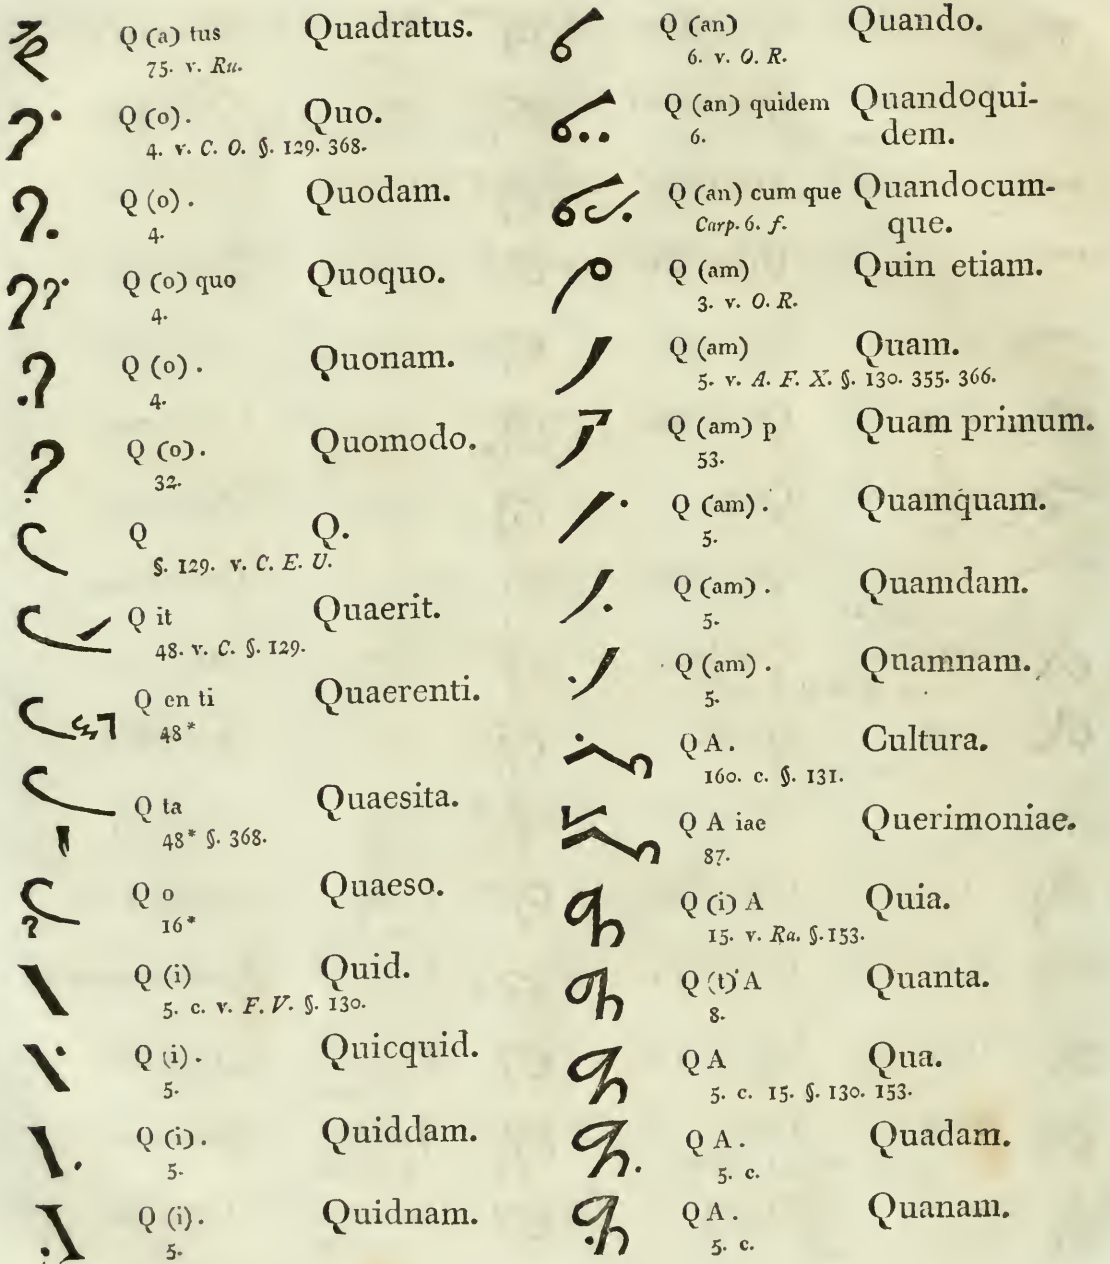 Q (a) tus Quadratus.
75. v. Ru.
Q (o). Quo.
4. v. C. O. §. 129. 368.
Q (o). Quodam.
4.
Q (o) quo Quoquo.
4.
Q (o). Quonam.
4.
Q (o). Quomodo.
32.
Q Q.
§. 129. v. C. E. U.
Q it Quaerit.
48. v. C. §. 129.
Q en ti Quaerenti.
48*
Q ta Quaesita.
48* §. 368.
Q o Quaeso.
16*
Q (i) Quid.
5. c. v. F. V. §. 130.
Q (i). Quicquid.
5.
Q (i). Quiddam.
5.
Q (i). Quidnam.
5.
Q (an) Quando.
6. v. O. R.
Q (an) quidem Quandoqui-
6. dem.
Q (an) cum que Quandocum-
Carp. 6. f. que.
Q (am) Quin etiam.
3. v. O. R.
Q (am) Quam.
5. v. A. F. X. §. 130. 355. 366.
Q (am) p Quam primum.
53.
Q (am). Quamquam.
5.
Q (am). Quamdam.
5.
Q (am). Quamnam.
5.
Q A. Cultura.
160. c. §. 131.
Q A iae Querimoniae.
87.
Q (i) A Quia.
15. v. Ra. §. 153.
Q (t) A Quanta.
8.
Q A Qua.
5. c. 15. §. 130. 153.
Q A. Quadam.
5. c.
Q A. Quanam.
5. c.